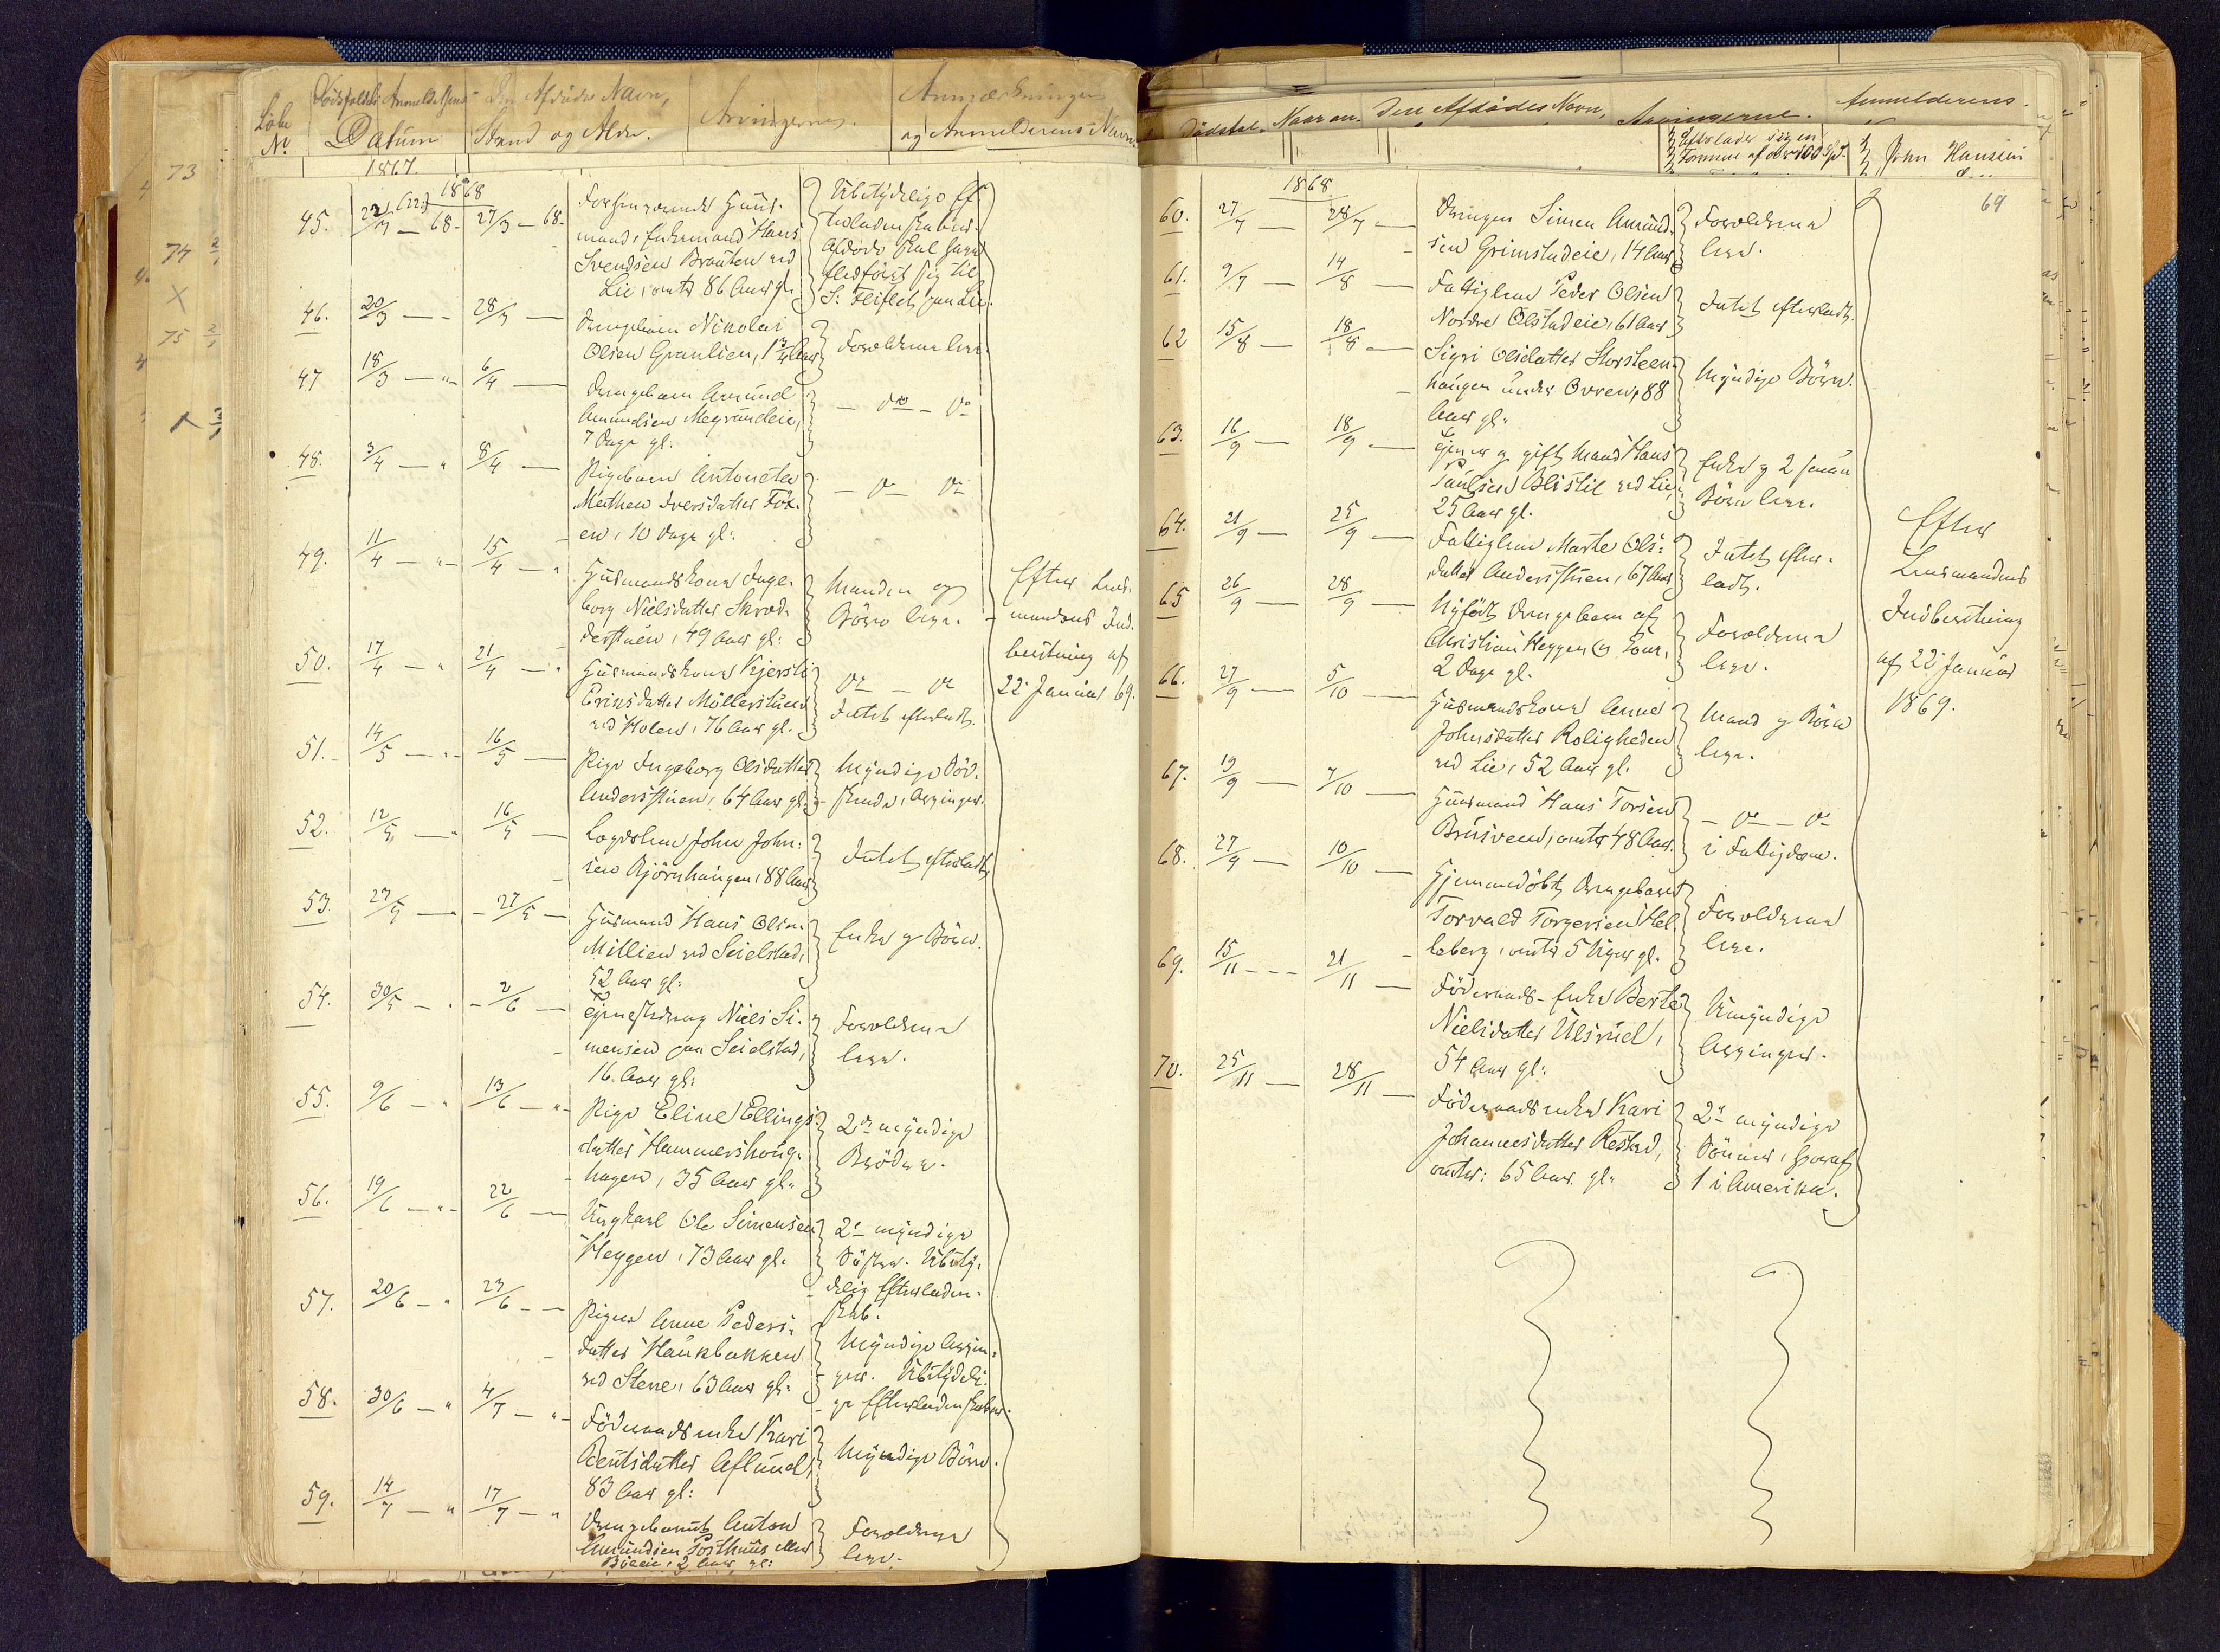 Løbe
No
Dødsfaldets
Anmeldelsens
Datum
Den Afdødes Navn,
Stand og Alder.
Arvingerne.
Anmærkninger
og Anmelderens Navn.
1867.
1868
45. 22/3 (22:) — 68. 27/3 — 68.
Huus-
mand, Enkemand Hans
Svendsen Braaten ved
Lie, omtr 86 Aar gl.
Ubetydelige Ef-
terladenskaber.
Afdøde skal have
S: Fleiflet paa Lie.
46. 20/3 — 28/3 —
Drengebarn Nikolai
Olsen Granlien, 1 3/4 Aar
Forældrene leve.
47 18/3 — " — 6/4 —
Drengebarn Amund
Amundsen Megrundeie,
7 Dage gl.
— do — do
48. 3/4 — " 8/4 —
Pigebarn Antonette
Mathea Iversdatter Fox-
en, 10 Dage gl:
— do — do
49. 11/4 — " — 15/4 — "
Huusmandskone Inge-
borg Nielsdatter Skred-
derstuen, 49 Aar gl:
Manden og
Børn leve.
Efter Lens-
mandens Ind-
beretning af
22 Januar 69.
50. 17/4 — " 21/4 — "
Huusmandskone Kjersti
Eriksdatter Møllerstuen
ved Holen, 76 Aar gl.
do — do
Intet efterladt.
51. 14/5 — " — 16/5 —
Pige Ingeborg Olsdatter
Andersstuen, 64 Aar gl.
Myndige Sød-
skende, Arvinger.
52. 12/5 — " 16/5 —
Lægdslem John John-
sen Bjørnhaugen, 88 Aar
Intet efterladt
53. 27/5 — " — 27/5 —
Huusmand Hans Olsen
Millien ved Seielstad,
52 Aar gl:
Enke og Børn.
54. 30/5 — " — 2/6 —
Tjenestedreng Niels Si-
mensen paa Seielstad,
16 Aar gl:
Forældrene
leve.
55. 9/6 — " 13/6 — " —
Pige Eline Ellings-
datter Hammershoug-
hagen, 35 Aar gl.
2de myndige
Brødre.
56. 19/6 — " — 22/6 —
Ungkarl Ole Simensen
Heggen, 73 Aar gl.
2de myndige
Søstre. Ubety-
delig Efterladen-
skab.
57. 20/6 — " 23/6 — —
Pigen Anne Peders-
datter Haukbakken
ved Stene, 63 Aar gl:
Myndige Arvin-
ger. Ubetydeli-
ge Efterladenskaber.
58. 30/6 — " 4/7 — " —
Føderaadsenke Kari
Berntsdatter Aflund,
83 Aar gl:
Myndige Børn.
59. 14/7 — " 17/7 — "
Drengebarnet Anton
Amundsen Posthuus eller
Bøeeie, 2 Aar gl:
Forældrene
leve.
Dødsfal- Naar an- Den Afdødes Navn, Arvingerne. Anmelderens
Efterlader sig en
Formue af over 100 Spd.
John Hansen
69
1868
60. 27/7 — 28/7 —
Drengen Simen Amund-
sen Grimstadeie, 14 Aar
Forældrene
leve.
61. 9/7 — 14/8 —
Fattiglem Peder Olsen
Nordre Ølstadeie, 61 Aar
Intet efterladt.
62 15/8 — 18/8 —
Sigri Olsdatter Storsteen-
haugen under Ovren, 88
Aar gl.
Myndige Børn.
63. 16/9 — 18/9 —
gift Mand Hans
Paulsen Blistil ved Lie,
25 Aar gl.
Enke og 2 smaa
Børn leve.
64. 21/9 — 25/9 —
Fattiglem Marte Ols-
datter Andersstuen, 67 Aar
Intet efter-
ladt.
Efter
Lensmandens
Indberetning
af 22 Januar
1869.
65 26/9 — 28/9 —
Nyfødt Drengebarn af
Christian Heggen og Kone,
2 Dage gl.
Forældrene
leve.
66. 27/9 — 5/10 —
Huusmandskone Anne
Johnsdatter Roligheden
ved Lie, 52 Aar gl.
Mand og Børn
leve.
67. 19/9 — 7/10 —
Huusmand Hans Torsen
Brusveen, omtr 48 Aar.
— do — do
i Fattigdom.
68. 27/9 — 10/10 —
Hjemmedøbt Drengebarn
Torvald Torgersen Hel-
leberg, omtr 5 Uger gl.
Forældrene
leve.
69. 15/11 — — — 21/11 —
Føderaads-Enke Berte
Nielsdatter Ulsrud,
54 Aar gl:
Umyndige
Arvinger.
70. 25/11 — 28/11 —
Føderaadsenke Kari
Johannesdatter Røstad,
omtr: 65 Aar gl.
2de myndige
Sønner, hvoraf
1 i Amerika.